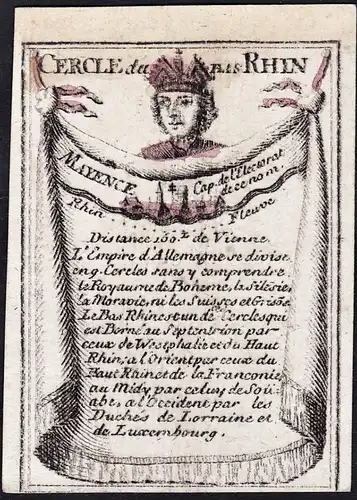 CERCLE du BAS RHIN
MAYENCE
Cap. de l'Electorat
de ce nom.
Rhin Fleuve
Distance 150.L de Vienne.
L'Empire d'Allemagne se divise
en 9. Cercles sans y comprendre
le Royaume de Boheme, la Silesie,
la Moravie, ni les Suisses et Grisōs
Le Bas Rhin est un de Cercles qui
est Borné au Septentrion par
ceux de Westphalie et du Haut
Rhin, a l'Orient par ceux du
Haut Rhin et de la Franconie,
au Midy par celuy de Sou-
abe, a l'Occident par les
Duchés de Lorraine et
de Luxembourg.